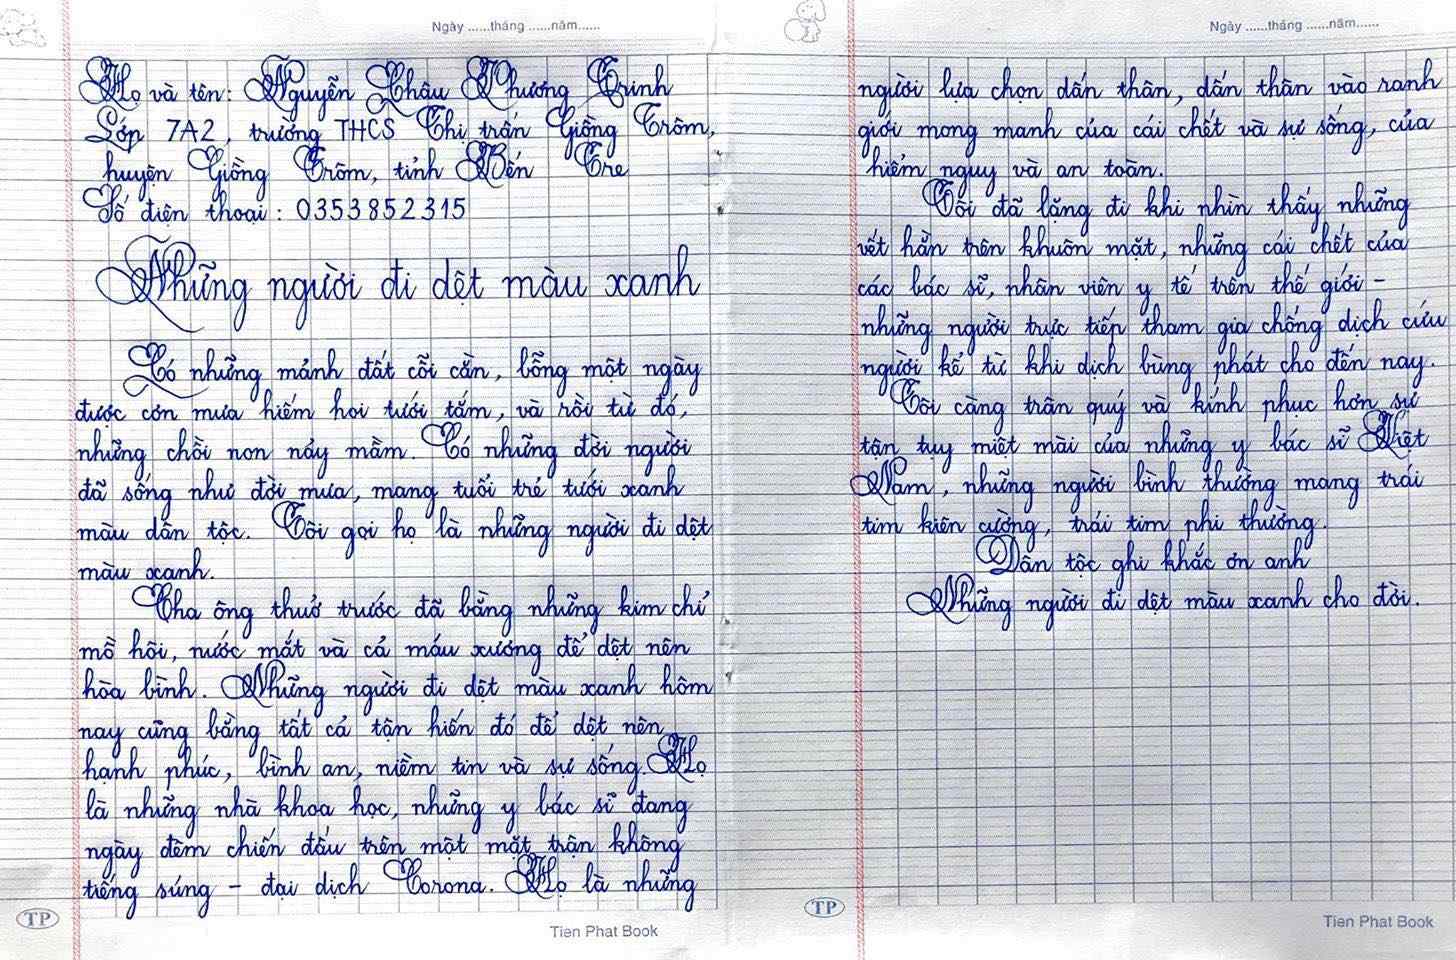 Ngày ......tháng ......năm......
Họ và tên: Nguyễn Châu Phương Trinh
Lớp 7A2, trường THCS Thị trấn Giồng Trôm,
huyện Giồng Trôm, tỉnh Bến Tre
Số điện thoại: 0353852315
Những người đi dệt màu xanh
Có những mảnh đất cỗi cằn, bỗng một ngày
được cơn mưa hiếm hoi tưới tắm, và rồi từ đó,
những chồi non nảy mầm. Có những đời người
đã sống như đời mưa, mang tuổi trẻ tưới xanh
màu dân tộc. Tôi gọi họ là những người đi dệt
màu xanh.
Cha ông thuở trước đã bằng những kim chỉ
mồ hôi, nước mắt và cả máu xương để dệt nên
hòa bình. Những người đi dệt màu xanh hôm
nay cũng bằng tất cả tận hiến đó để dệt nên
hạnh phúc, bình an, niềm tin và sự sống. Họ
là những nhà khoa học, những y bác sĩ đang
ngày đêm chiến đấu trên một mặt trận không
tiếng súng - đại dịch Corona. Họ là những
TP
Tien Phat Book
Ngày ......tháng ......năm......
người lựa chọn dấn thân, dấn thân vào ranh
giới mong manh của cái chết và sự sống, của
hiểm nguy và an toàn.
Tôi đã lặng đi khi nhìn thấy những
vết hằn trên khuôn mặt, những cái chết của
các bác sĩ, nhân viên y tế trên thế giới -
những người trực tiếp tham gia chống dịch cứu
người kể từ khi dịch bùng phát cho đến nay.
Tôi càng trân quý và kính phục hơn sự
tận tụy miệt mài của những y bác sĩ Việt
Nam, những người bình thường mang trái
tim kiên cường, trái tim phi thường.
Dân tộc ghi khắc ơn anh
Những người đi dệt màu xanh cho đời.
TP
Tien Phat Book